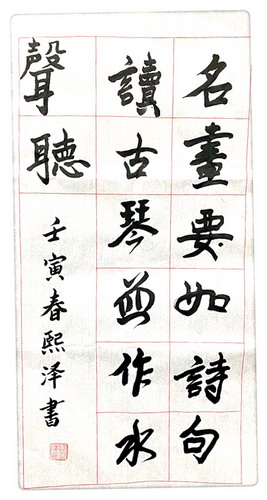 名畫要如詩句
讀古琴並作水
聲聽
壬寅春熙泽書